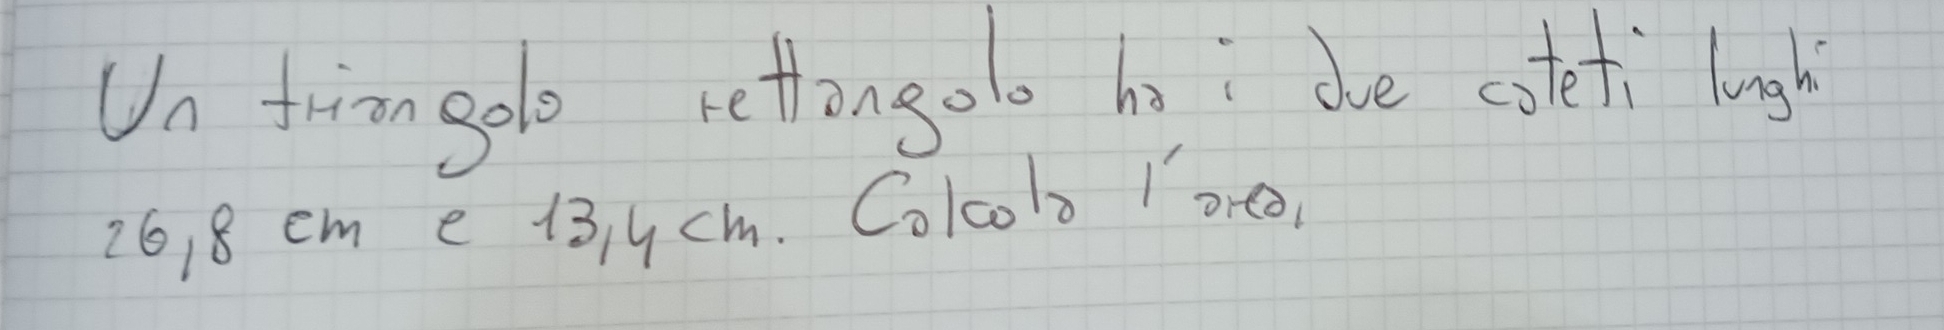 Un triangolo rettangolo ha i due cateti lunghi
26,8 cm e 13,4 cm. Calcola l'area.